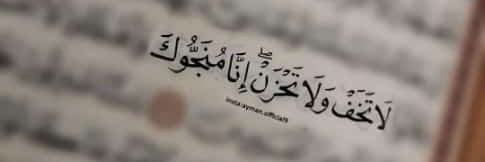 لَا تَخَفْ وَلَا تَحْزَنْ ۖ إِنَّا مُنَجُّوكَ
insta:ayman.official9